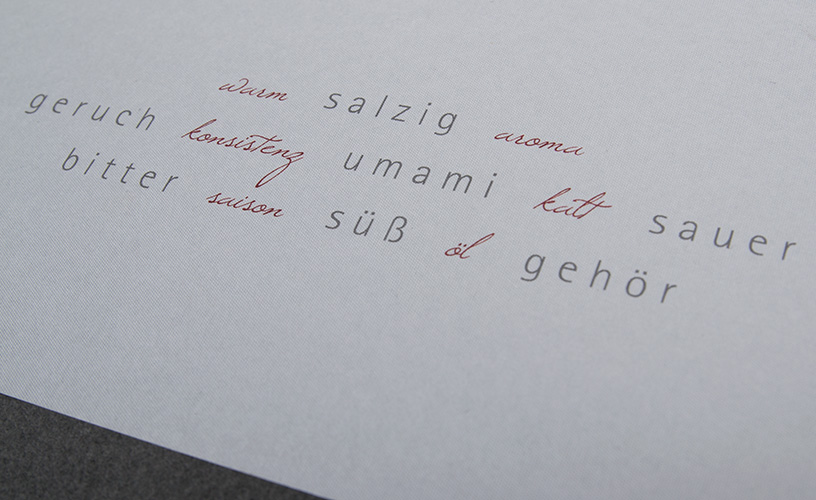 warm salzig aroma
geruch konsistenz umami kalt sauer
bitter saison süß öl gehör